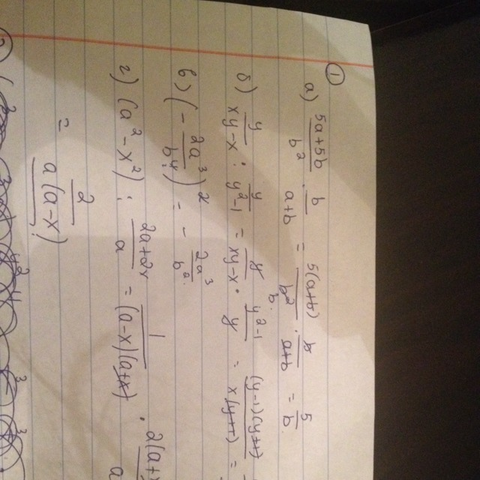 ①
а) 5a+5b/b² · b/a+b = 5(a+b)/b² · b/a+b = 5/b
б) y/xy-x : y/y²-1 = y/xy-x · y²-1/y = (y-1)(y+1)/x(y+1) =
в) (-2a³/b⁴)² = -2a³/b²
г) (a²-x²) : 2a+2x/a = 1/(a-x)(a+x) · 2(a+x
= 2/a(a-x)